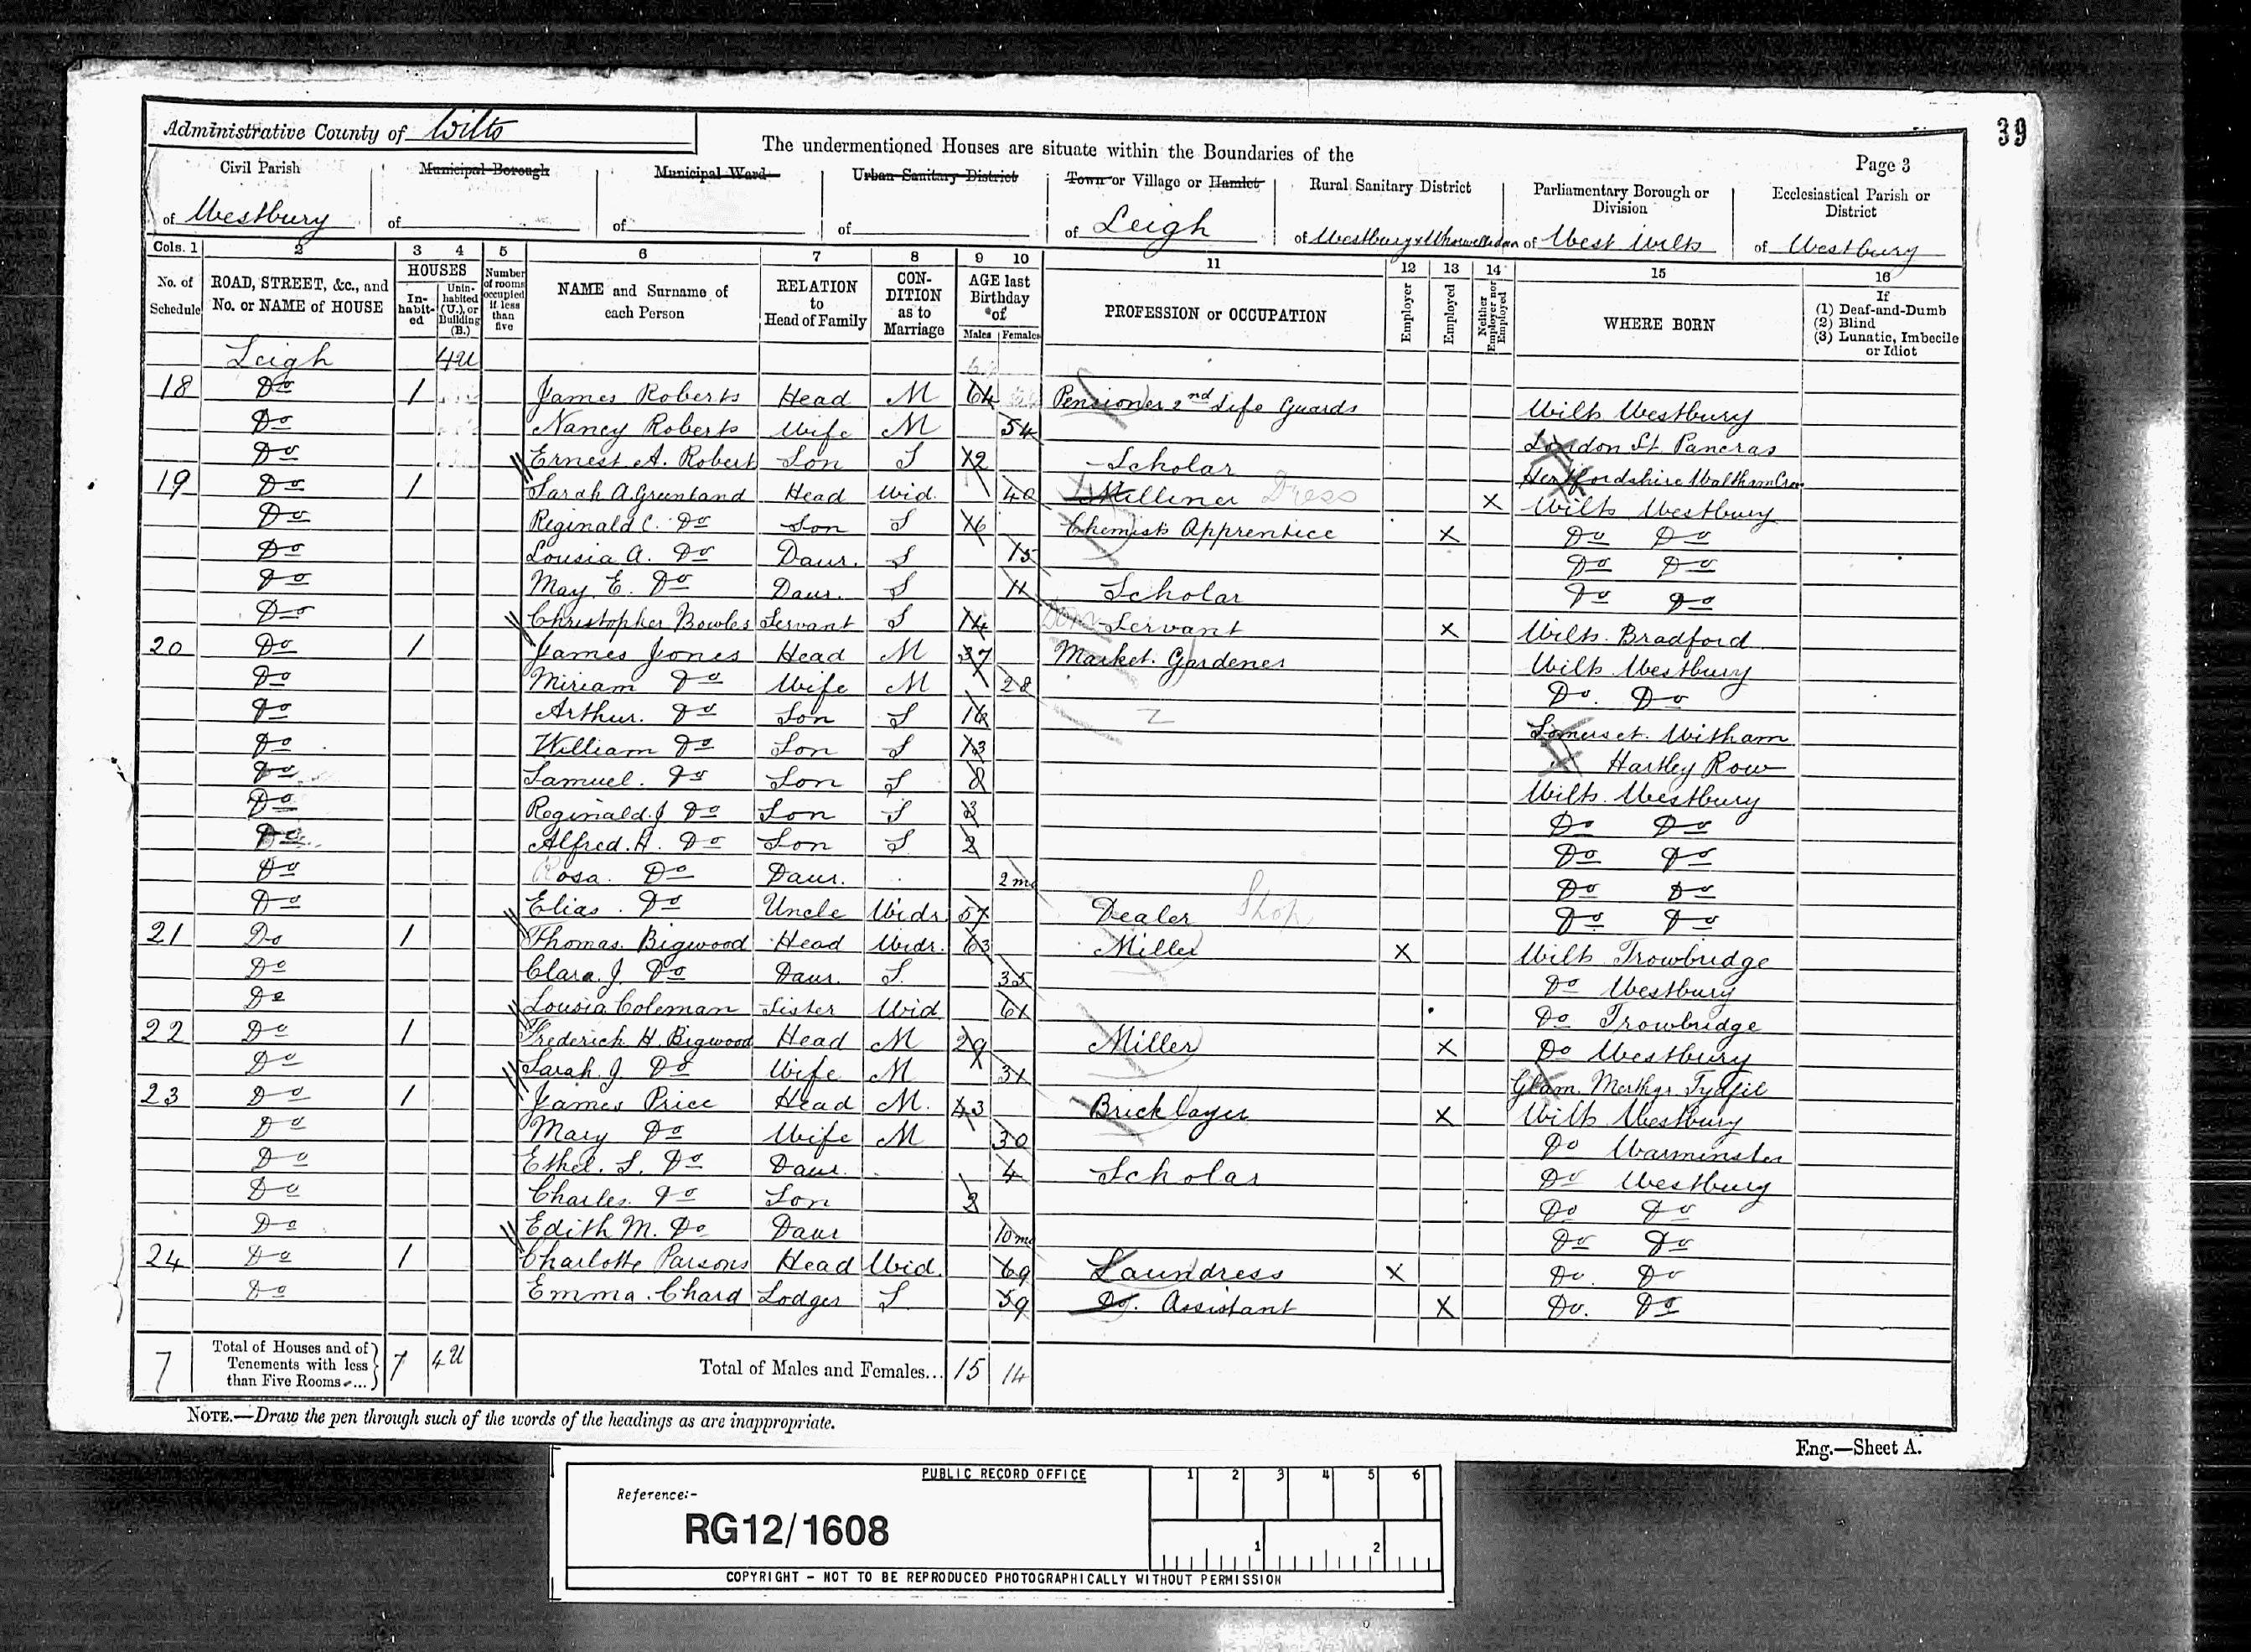 39
Administrative County of Wilts
The undermentioned Houses are situate within the Boundaries of the
Page 3
Civil Parish Municipal Borough Municipal Ward Urban Sanitary District Town or Village or Hamlet Rural Sanitary District Parliamentary Borough or Division Ecclesiastical Parish or District
of Westbury of of of of Leigh of Westbury & Whorwellsdown of West Wilts of Westbury
Cols. 1 2 3 4 5 6 7 8 9 10 11 12 13 14 15 16
No. of Schedule ROAD, STREET, &c., and No. or NAME of HOUSE HOUSES Inhabited Uninhabited (U.), or Building (B.) Number of rooms occupied if less than five NAME and Surname of each Person RELATION to Head of Family CONDITION as to Marriage AGE last Birthday of Males Females PROFESSION or OCCUPATION Employer Employed Neither Employer nor Employed WHERE BORN If (1) Deaf-and-Dumb (2) Blind (3) Lunatic, Imbecile or Idiot
Leigh 4U
18 Do 1 James Roberts Head M 64 Pensioner 2nd Life Guards Wilts Westbury
Do Nancy Roberts Wife M 54 London St Pancras
Do Ernest A. Robert Son S 12 Scholar Hertfordshire Waltham Cross
19 Do 1 Sarah A. Greenland Head Wid. 40 Milliner Dress X Wilts Westbury
Do Reginald C. Do Son S 16 Chemists Apprentice X Do Do
Do Lousia A. Do Daur. S 15 Do Do
Do May. E. Do Daur. S 11 Scholar Do Do
Do Christopher Bowles Servant S 14 Dom Servant X Wilts. Bradford
20 Do 1 James Jones Head M 37 Market. Gardener Wilts Westbury
Do Miriam Do Wife M 28 Do. Do
Do Arthur. Do Son S 16 Somerset. Witham
Do William Do Son S 13 " Hartley Row
Do Samuel. Do Son S 8 Wilts. Westbury
Do Reginald. J Do Son S 3 Do Do
Do Alfred. H. Do Son S 2 Do Do
Do Rosa. Do Daur. 2 mo Do Do
Do Elias. Do Uncle Widr. 57 Dealer Shop Do Do
21 Do 1 Thomas. Bigwood Head Widr. 63 Miller X Wilts Trowbridge
Do Clara. J. Do Daur. S. 35 Do Westbury
Do Lousia Coleman Sister Wid 61 Do Trowbridge
22 Do 1 Frederick H. Bigwood Head M 29 Miller X Do Westbury
Do Sarah. J. Do Wife M 31 Glam. Merthyr Tydfil
23 Do 1 James Price Head M. 43 Bricklayer X Wilts Westbury
Do Mary Do Wife M 30 Do Warminster
Do Ethel. S. Do Daur. 4 Scholar Do Westbury
Do Charles. Do Son 2 Do Do
Do Edith M. Do Daur 10 mo Do Do
24 Do 1 Charlotte Parsons Head Wid. 69 Laundress X Do. Do
Do Emma. Chard Lodger S. 59 Do. Assistant X Do. Do
7 Total of Houses and of Tenements with less than Five Rooms 7 4U Total of Males and Females... 15 14
NOTE.—Draw the pen through such of the words of the headings as are inappropriate.
Eng.—Sheet A.
PUBLIC RECORD OFFICE
1 2 3 4 5 6
Reference:-
RG12/1608
1 2
COPYRIGHT - NOT TO BE REPRODUCED PHOTOGRAPHICALLY WITHOUT PERMISSION